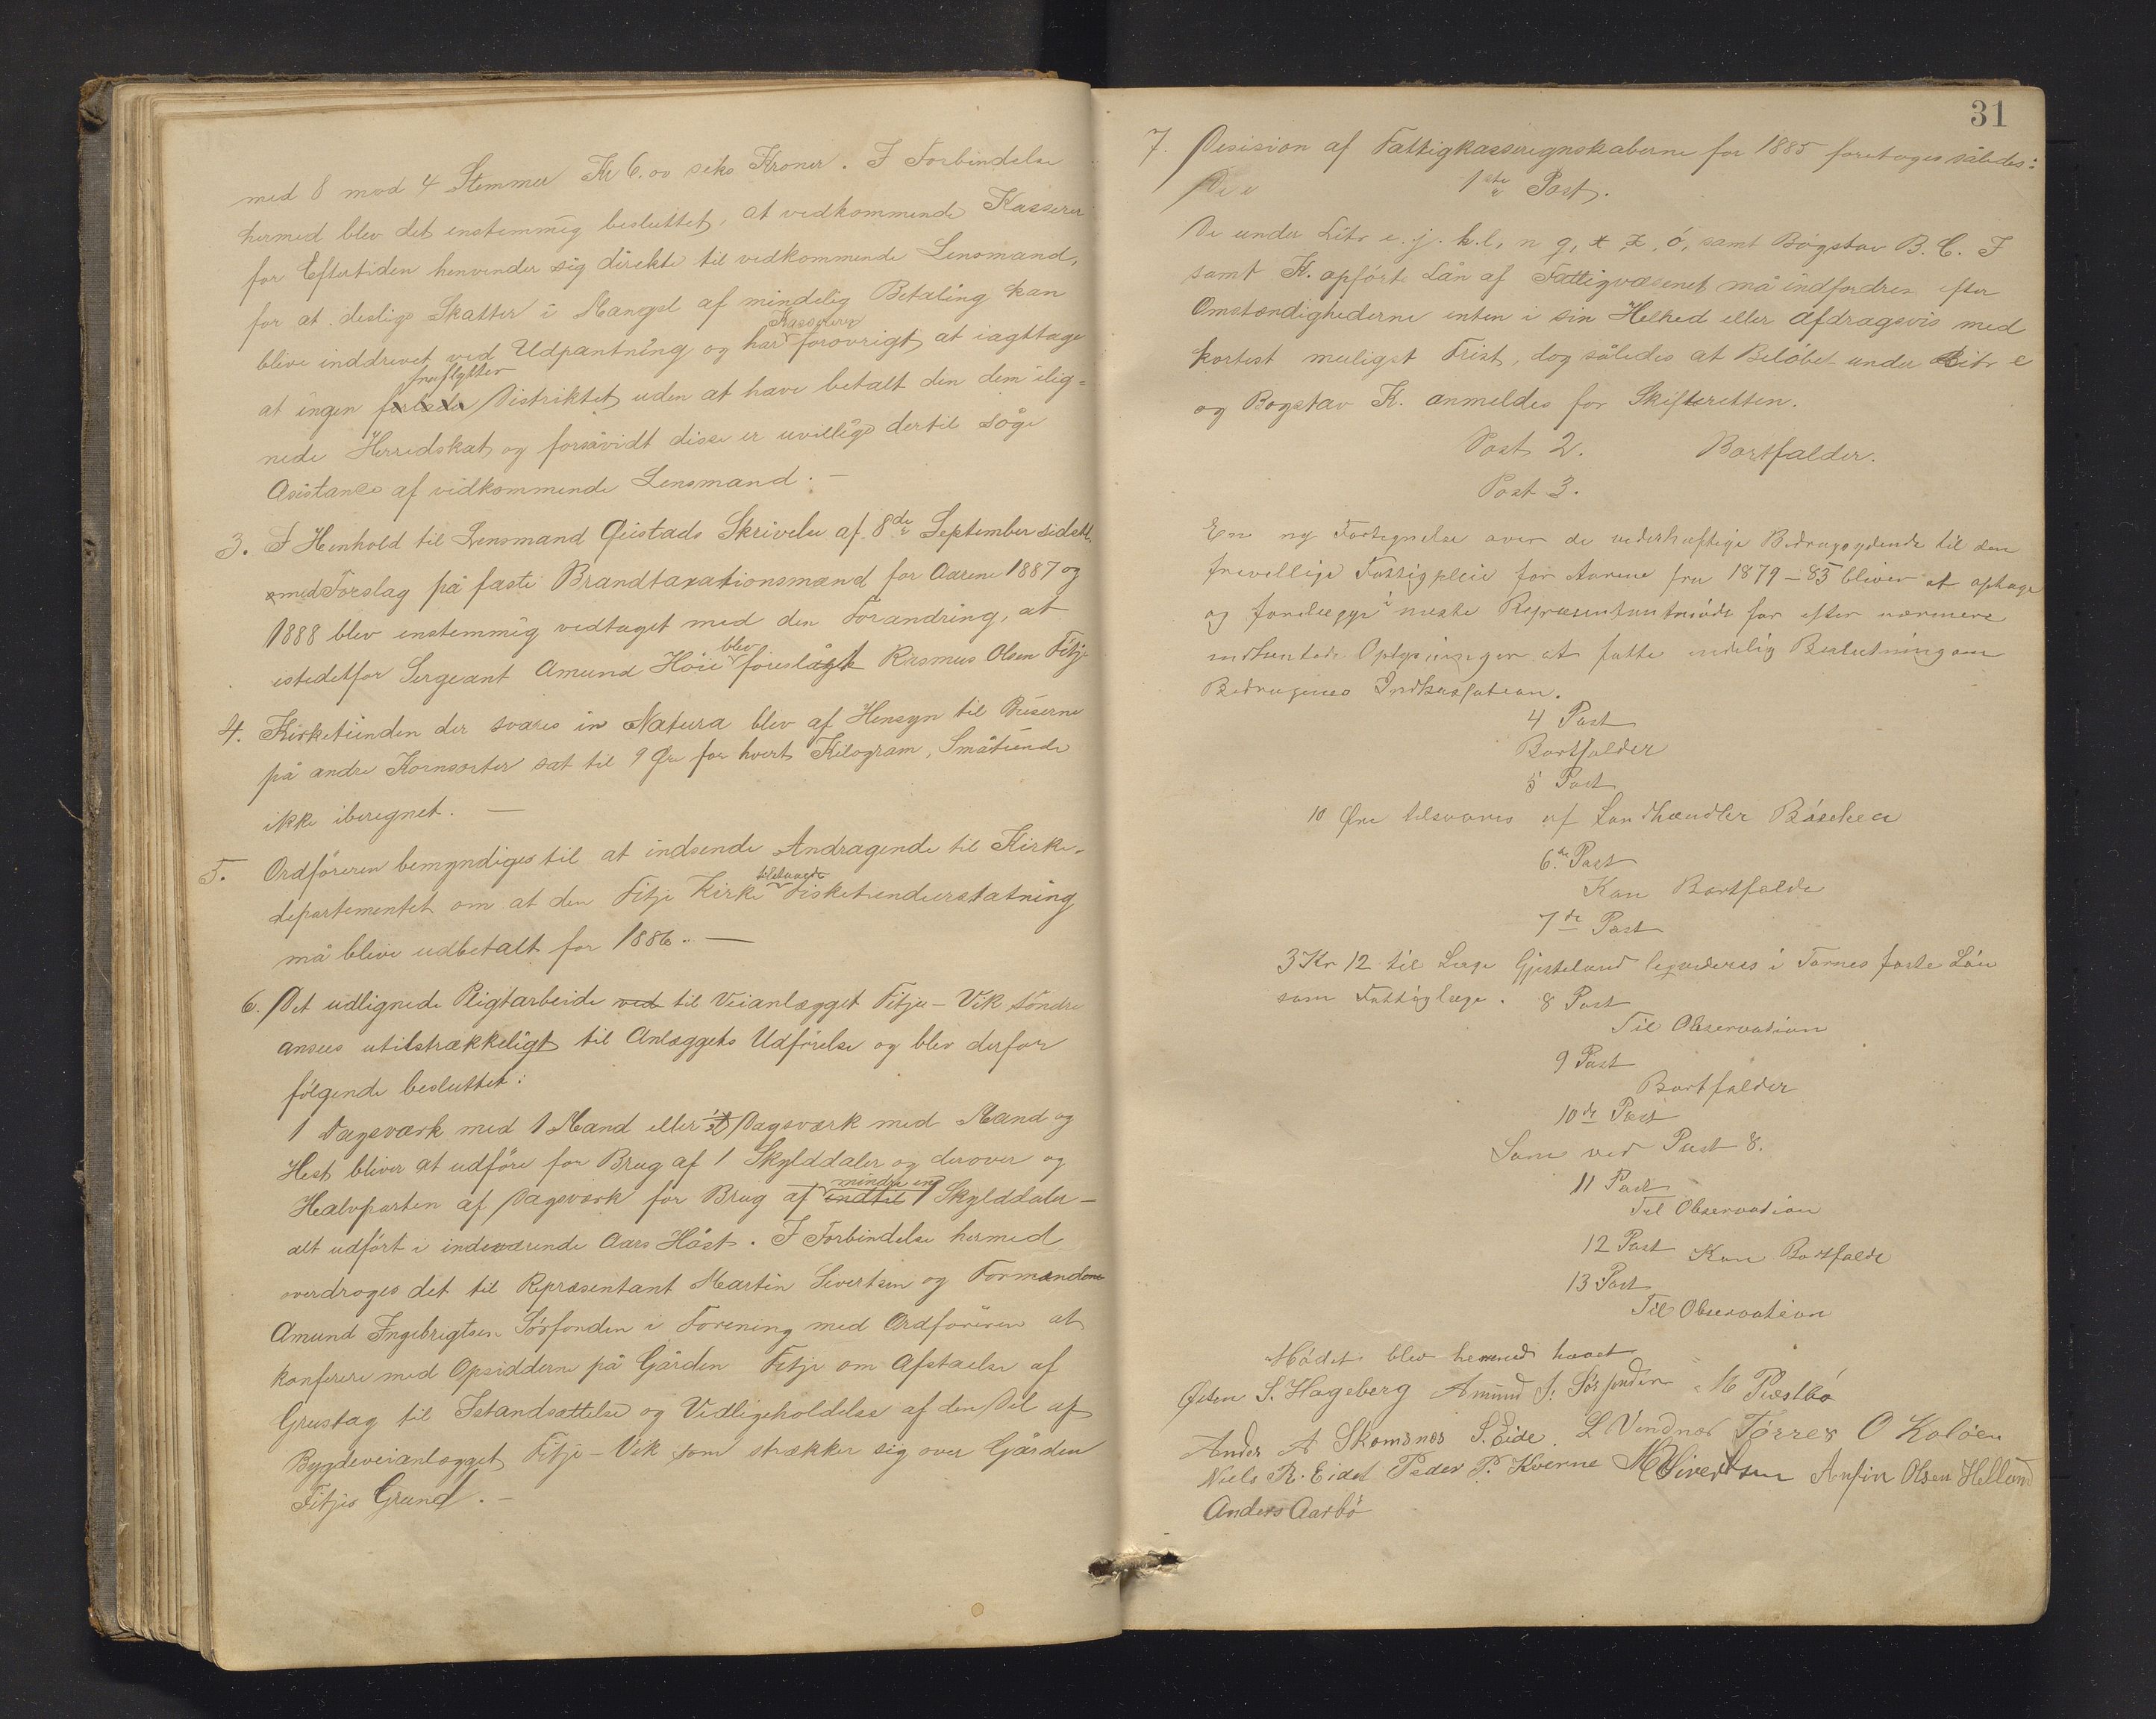 med 8 mod 4 Stemmer Kr 6.00 seks Kroner. I Forbindelse
hermed blev det enstemmig besluttet, at vedkommende Kasserer
for Eftertiden henvender sig direkte til vedkommende Lensmand,
for at deslige Skatter i Mangel af mindelig Betaling kan
blive inddrevet ved Udpantning og har Kassereren forøvrigt at iagttage
at ingen forlader fraflytter Distriktet uden at have betalt den dem ilig-
nede Herredskat og forsåvidt disse er uvillige dertil søge
Asistance af vidkommende Lensmand. –
3. I Henhold til Lensmand Gjistads Skrivelse af 8de September sidstl.
med Forslag på faste Brandtaxationsmænd for Aarene 1887 og
1888 blev enstemmig vedtaget med den Forandring, at
istedetfor Sergeant Amund Höie blev foreslågt Rasmus Olsen Fitje
4. Kirketiinden der svares in Natura blev af Hensyn til Priserne
på andre Kornsorter sat til 9 Øre for hvert Kilogram, Småtiende
ikke iberegnet. –
5. Ordföreren bemyndiges til at indsende Andragende til Kirke-
departementet om at den Fitje Kirke tilstaaede Fisketiendeerstatning
må blive udbetalt for 1886. –
6. Det udlignede Pligtarbeide ved til Veianlægget Fitje – Vik söndre
ansees utilstrækkeligt til Anlæggets Udförelse og blev derfor
fölgende besluttet:
1 Dagsværk med 1 Mand eller ½ Dagsværk med Mand og
Hest bliver at udföre for Brug af 1 Skylddaler og derover og
Halvparten af Dagsværk for Brug af indtil mindre end 1 Skylddaler –
alt udfört i indeværende Aars Höst. I Forbindelse hermed
overdroges det til Repræsentant Martin Sivertsen og Formændene
Amund Ingebrigtsen Sörfonden i Forening med Ordföreren at
konferere med Opsidderne på Gården Fitje om Afståelse af
Grustag til Istandsættelse og Vedligeholdelse af den Del af
Bygdeveianlægget Fitje – Vik som strækker sig over Gården
Fitjes Grund. –
31
7. Desision af Fattigkasseregnskaberne for 1885 foretoges således:
De e 1ste Post.
De under Litr e. j. k. l, n q, x, z, ö, samt Bogstav B. C. F
samt K. opförte Lån af Fattigvæsenet må indfordres efter
Omstændighederne enten i sin Helhed eller afdragsvis med
kortest muligst Frist, dog således at Belöbet under Litr e
og Bogstav K. anmeldes for Skifteretten.
Post 2. Bortfalder.
Post 3.
En ny Fortegnelse over de vederhæftige Bidragsydende til den
frivellige Fattigpleie for Aarene fra 1879–85 bliver at optage
og forelægge i neste Repræsentantmöde for efter nærmere
indhentede Oplysninger at fatte endelig Beslutning om
Bidragenes Indkassation.
4 Post
Bortfalder
5 Post
10 Øre tilsvares af Landhandler
6te Post
Kan Bortfalde
7de Post
3 Kr 12 til Læge Gjesteland i faste Lön
som Fattiglæge. 8 Post
Til Observation
9 Post
Bortfalder
10de Post
Som ved Post 8.
11 Post
Til Observation
12 Post Kan Bortfalde
13 Post
Til Observation
Mödet blev hermed hævet
Østen S. Hageberg Amund I. Sörfonden M Præstbö
Anders A Skomsnes S. Eide. L Vendnes Tørres O Kolöen
Niels R. Eidet Peder P. Kverne M Sivertsen Anfin Olsen Helland
Anders Aarbö